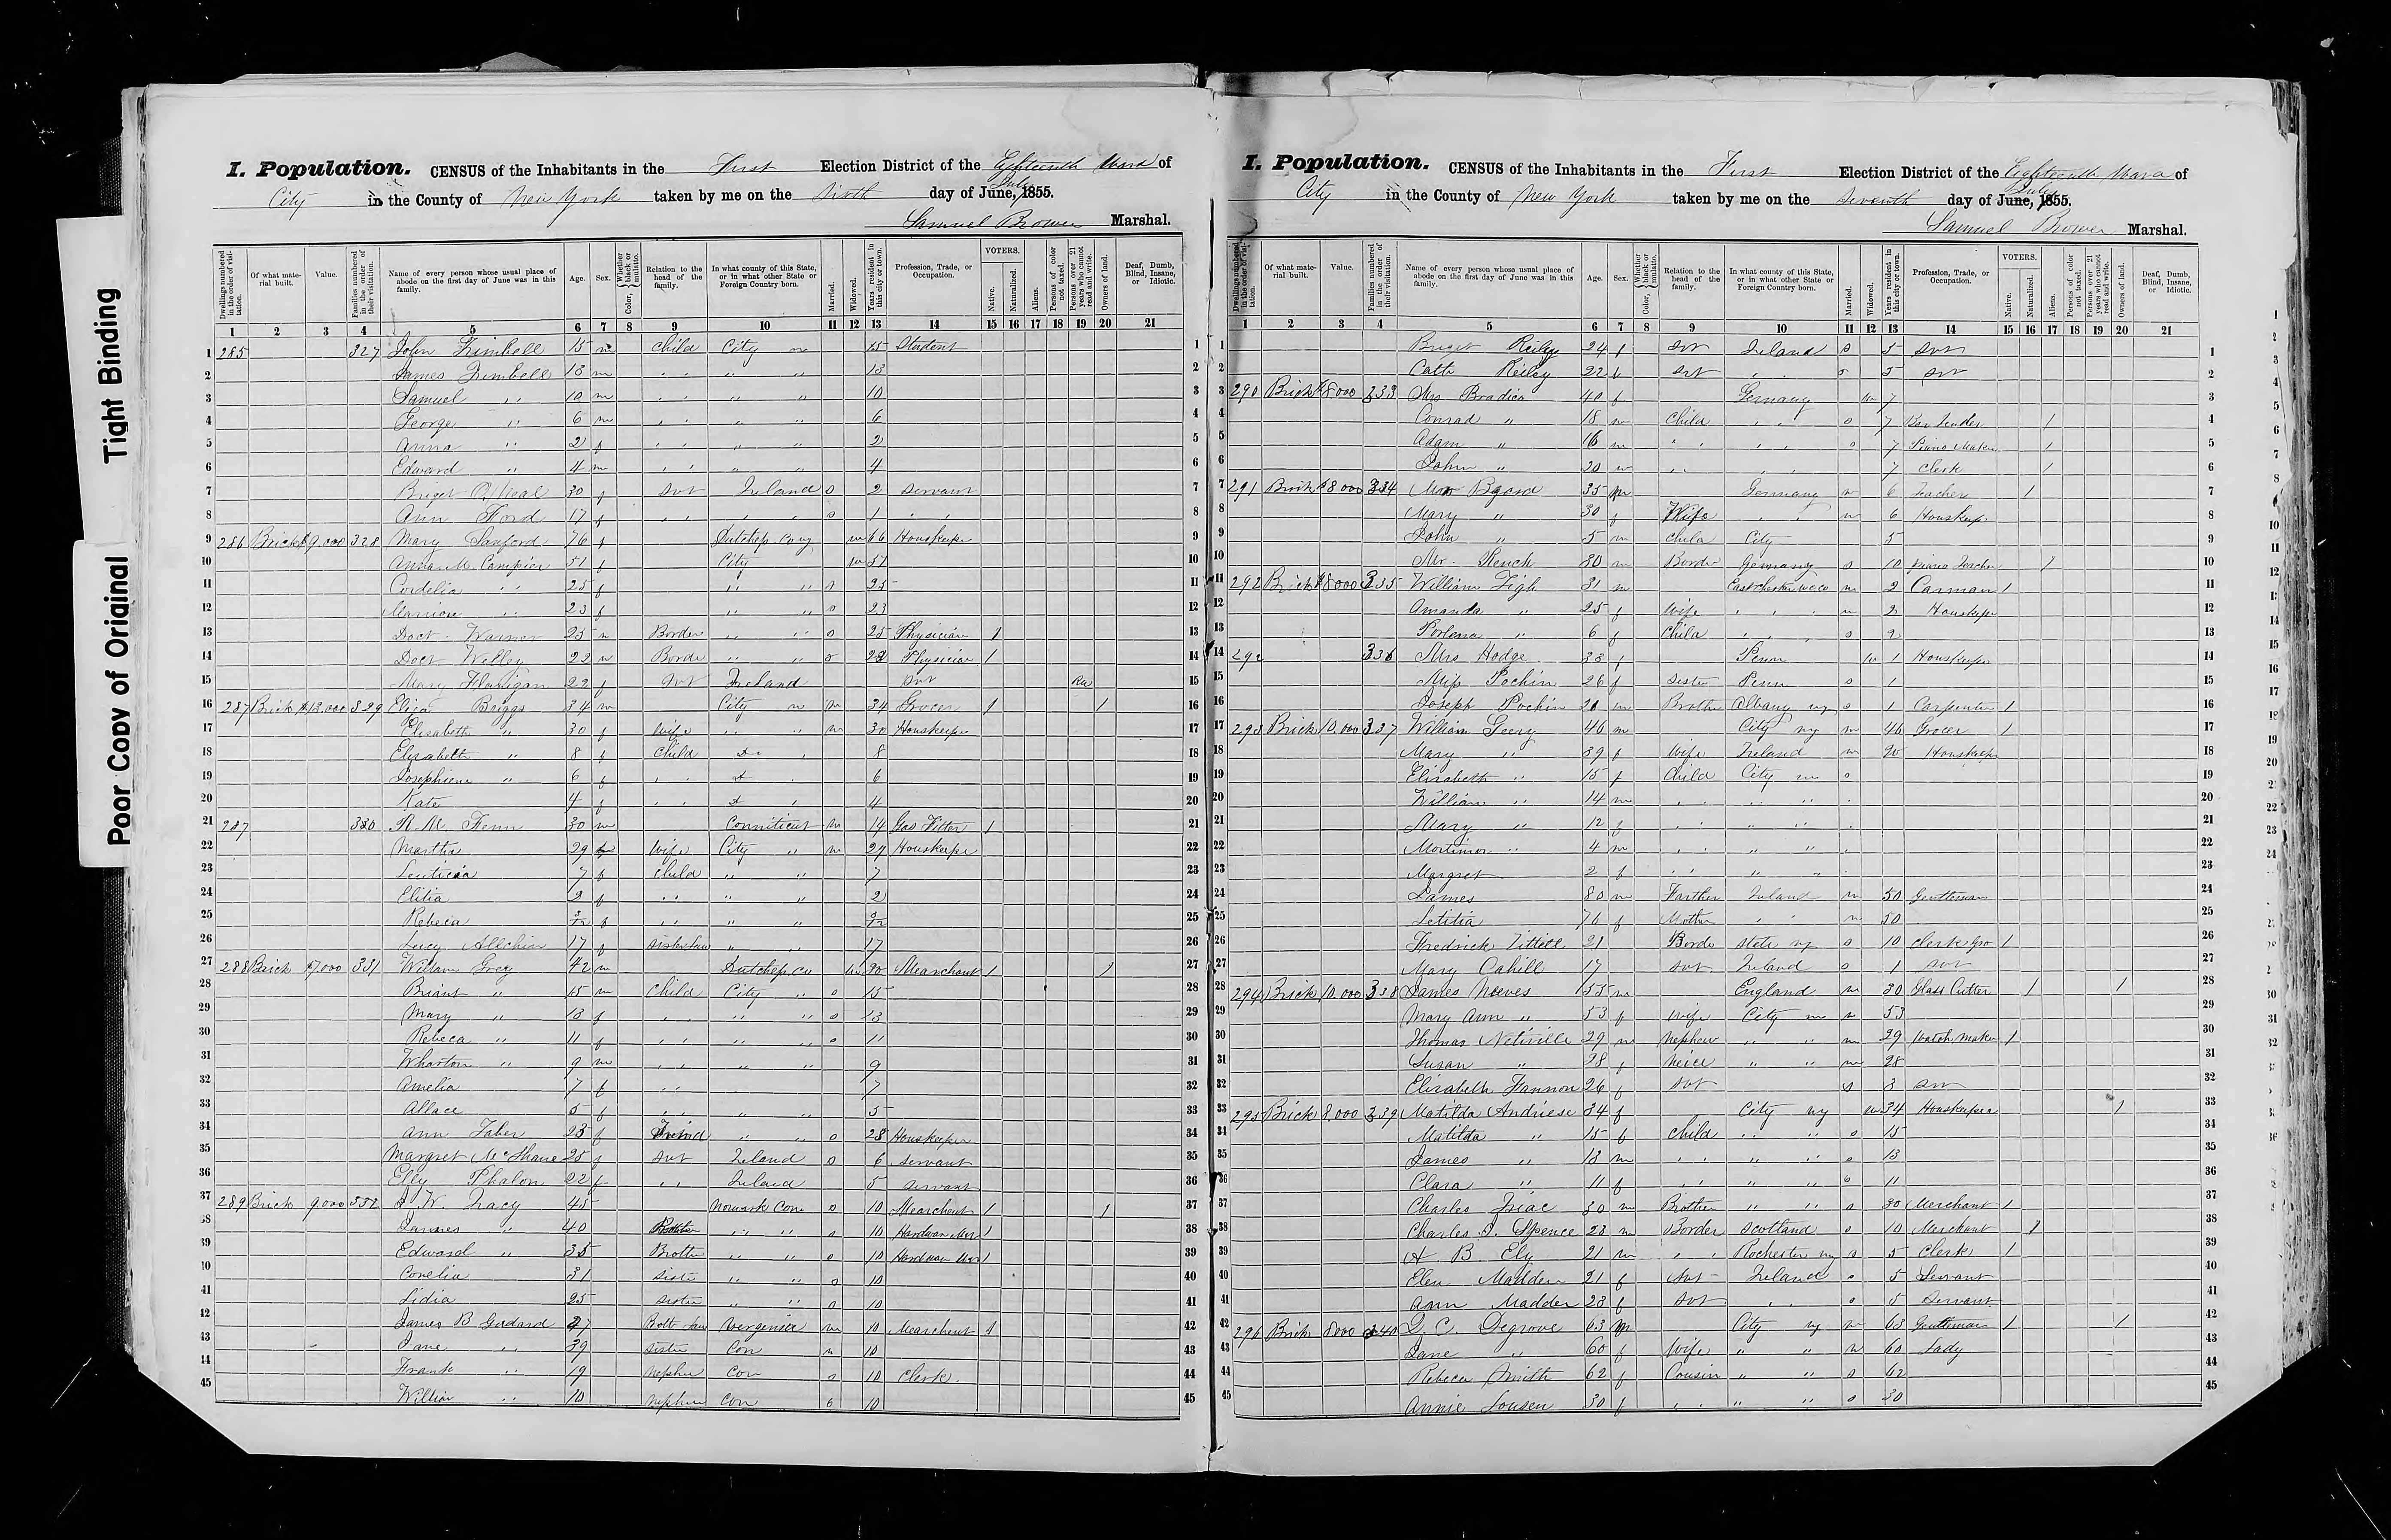 Poor Copy of Original Tight Binding
I. Population. CENSUS of the Inhabitants in the First Election District of the Eighteenth Ward of
City in the County of New York taken by me on the Sixth day of June, July 1855.
Samuel Brower Marshal.
Dwellings numbered in the order of visitation. Of what material built. Value. Families numbered in the order of their visitation. Name of every person whose usual place of abode on the first day of June was in this family. Age. Sex. Color, Whether black or mulatto. Relation to the head of the family. In what county of this State, or in what other State or Foreign Country born. Married. Widowed. Years resident in this city or town. Profession, Trade, or Occupation. VOTERS. Native. Naturalized. Aliens. Persons of color not taxed. Persons over 21 years who cannot read and write. Owners of land. Deaf, Dumb, Blind, Insane, or Idiotic.
1 2 3 4 5 6 7 8 9 10 11 12 13 14 15 16 17 18 19 20 21
1 285 327 John 15 m Child City 15 Student 1
2 James 13 m " " " " 13 2
3 Samuel " 10 m " " " " 10 3
4 George " 6 m " " " " 6 4
5 Anna " 2 f " " " " 2 5
6 Edward " 4 m " " " " 4 6
7 Briget O.Neal 30 f Svt Ireland s 2 Servant 7
8 Ann Ford 17 f " " " " s 1 " " 8
9 286 Brick $9.000 328 Mary Sanford 76 f Dutchess Co ny w 66 Houskeeper 9
10 Anna M. 51 f City w 51 10
11 Cordelia " 25 f " " s 25 11
12 Marrion " 23 f " " s 23 12
13 Doct. Warner 25 m Border " " s 25 Physician 1 13
14 Doct Welley 22 m Borde " " s Physician 1 14
15 Mary Flanigan 22 f Svt Ireland Svt 15
16 287 Brick $13.000 329 Briggs 34 m City m 34 Grocer 1 1 16
17 Elisabeth " 30 f wife " " m 30 Houskeeper 17
18 Elisabeth " 8 f Child 8 18
19 Josephiene " 6 f " " 6 19
20 Kate 4 f " " 4 20
21 287 330 R. M. Fenn 30 m Conniticut m 14 Gas Fitter 1 21
22 Martha 29 f Wife City " m 27 Houskeeper 22
23 7 f Child " " 7 23
24 Elitia 2 f " " " " 2 24
25 Rebeca f " " " " 25
26 Lucy Allchin 17 f Sister Law " " 17 26
27 288 Brick $7.000 331 William Grey 42 m Dutchess Co w 20 Mearchant 1 1 27
28 Briant " 15 m Child City " s 15 28
29 Mary " 13 f " " " " s 13 29
30 Rebeca " 11 f " " " " s 11 30
31 Wharton " 9 m " " " " 9 31
32 Amelia 7 f " " 7 32
33 Allace 5 f " " " " 5 33
34 Ann Taber 23 f Freind " " s 23 Houskeeper 34
35 Margret McShane 25 f Svt Ireland s 6 Servant 35
36 Elly Phalon 22 f " " Ireland 5 Servant 36
37 289 Brick 9.000 332 W. Tracy 45 Norwark Con s 10 Mearchent 1 1 37
38 James " 40 Brother " " s 10 Hardware Mer 1 38
39 Edward " 35 Brother " " s 10 Hardware Mer 1 39
40 Corelia 31 Sister " " s 10 40
41 Lidia 25 Sister " " s 10 41
42 James B Godard 47 Broth Law Vergenia m 10 Mearchent 1 42
43 Jane " 39 Sister Con m 10 43
44 Frank " 19 Nephew Con s 10 Clerk 44
45 William " 10 Nephew Con s 10 45
I. Population. CENSUS of the Inhabitants in the First Election District of the Eighteenth Ward of
City in the County of New York taken by me on the Seventh day of June, July 1855.
Samuel Brower Marshal.
Dwellings numbered in the order of visitation. Of what material built. Value. Families numbered in the order of their visitation. Name of every person whose usual place of abode on the first day of June was in this family. Age. Sex. Color, Whether black or mulatto. Relation to the head of the family. In what county of this State, or in what other State or Foreign Country born. Married. Widowed. Years resident in this city or town. Profession, Trade, or Occupation. VOTERS. Native. Naturalized. Aliens. Persons of color not taxed. Persons over 21 years who cannot read and write. Owners of land. Deaf, Dumb, Blind, Insane, or Idiotic.
1 2 3 4 5 6 7 8 9 10 11 12 13 14 15 16 17 18 19 20 21
1 Briget Reiley 24 f Svt Ireland s 5 Svt 1
2 Cath Reiley 22 f Svt " " s 5 Svt 2
3 290 Brick $8.000 333 Mrs Bradica 40 f Germany w 7 3
4 Conrad " 18 m Child " " s 7 Bar Tender 1 4
5 Adam " 16 m " " " " s 7 Piano Maker 1 5
6 John " 20 m " " " " 7 Clerk 1 6
7 291 Brick $8.000 334 35 m Germany m 6 Teacher 1 7
8 Mary " 30 f Wife " " m 6 Houskeeper 8
9 John " 5 m Child City 5 9
10 Mr. 30 m Border Germany s 10 Piano Teacher 1 10
11 292 Brick $8.000 335 William Figh 31 m East Chester We Co m 2 Carman 1 11
12 Amanda " 25 f Wife " " m 2 Houskeeper 12
13 " 6 f Child " " s 2 13
14 292 336 Mrs Hodge 38 f Penn w 1 Houskeeper 14
15 Miss Pochin 26 f Sister Penn s 1 15
16 Joseph Pochin 21 m Brother Albany ny s 1 Carpenter 1 16
17 293 Brick 10.000 337 William Geery 46 m City ny m 46 Grocer 1 17
18 Mary " 39 f Wife Ireland m 20 Houskeeper 18
19 Elisabeth " 15 f Child City s 19
20 William " 14 m " " " " 20
21 Mary " 12 f " " " " 21
22 Mortimor " 4 m " " " " 22
23 Margret 2 f " " " " 23
24 James 80 m Farther Ireland m 50 Gentleman 24
25 Letitia 76 f Mother " " m 50 25
26 Fredrick Tittell 21 Borde State ny s 10 Clerk Gro 1 26
27 Mary Cahill 17 Svt Ireland s 1 Svt 27
28 294 Brick 10.000 338 James Neeves 55 m England m 30 Glass Cutter 1 1 28
29 Mary Ann " 53 f wife City m 53 29
30 Thomas 29 m Nephew " " m 29 Watch Maker 1 30
31 Susan " 28 f Neice " " m 28 31
32 Elisabeth Fannon 26 f Svt s 3 Svt 32
33 295 Brick 8.000 339 Matilda Andriese 34 f City ny w 34 Houskeeper 1 33
34 Matilda " 15 f Child " " s 15 34
35 James " 13 m " " " " s 13 35
36 Clara " 11 f " " " " s 11 36
37 Charles Isiac 30 m Brother " " s 30 Merchant 1 37
38 Charles Spence 23 m Border Scotland s 10 Merchant 1 38
39 A. B. Ely 21 m " " Rochester ny s 5 Clerk 1 39
40 Elen Madden 21 f Svt Ireland s 5 Servant 40
41 Ann Madden 23 f Svt " " s 5 Servant 41
42 296 Brick 8000 340 C. Degrove 63 m City ny m 63 Gentleman 1 1 42
43 Jane " 60 f Wife " " m 60 Lady 43
44 Rebeca Smith 62 f Cousin " " s 62 44
45 Annie Lousen 30 f " " " " s 30 45